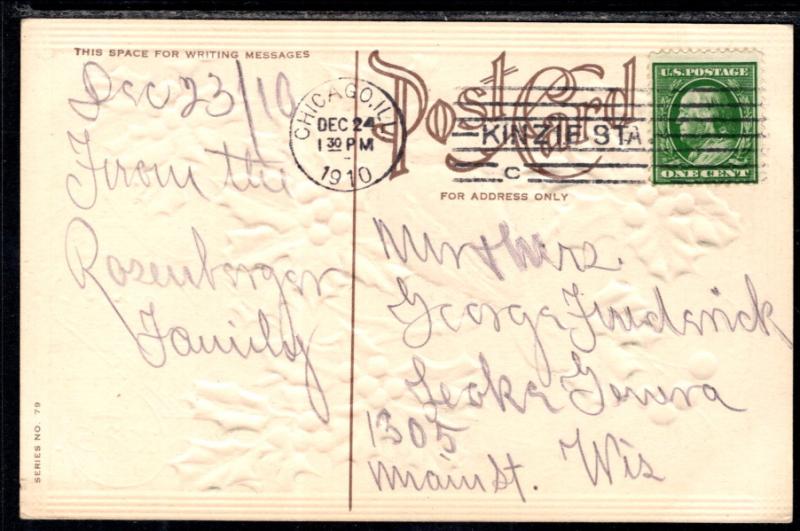 THIS SPACE FOR WRITING MESSAGES
Dec 23/10
From the
Rosenberger
Family
SERIES NO. 79
Post Card
CHICAGO, ILL.
DEC 24
1 30 PM
1910
KINZIE STA
C
U.S. POSTAGE
ONE CENT
FOR ADDRESS ONLY
Mr & Mrs.
George Frederick
Leake Geneva
1305
Main St. Wis